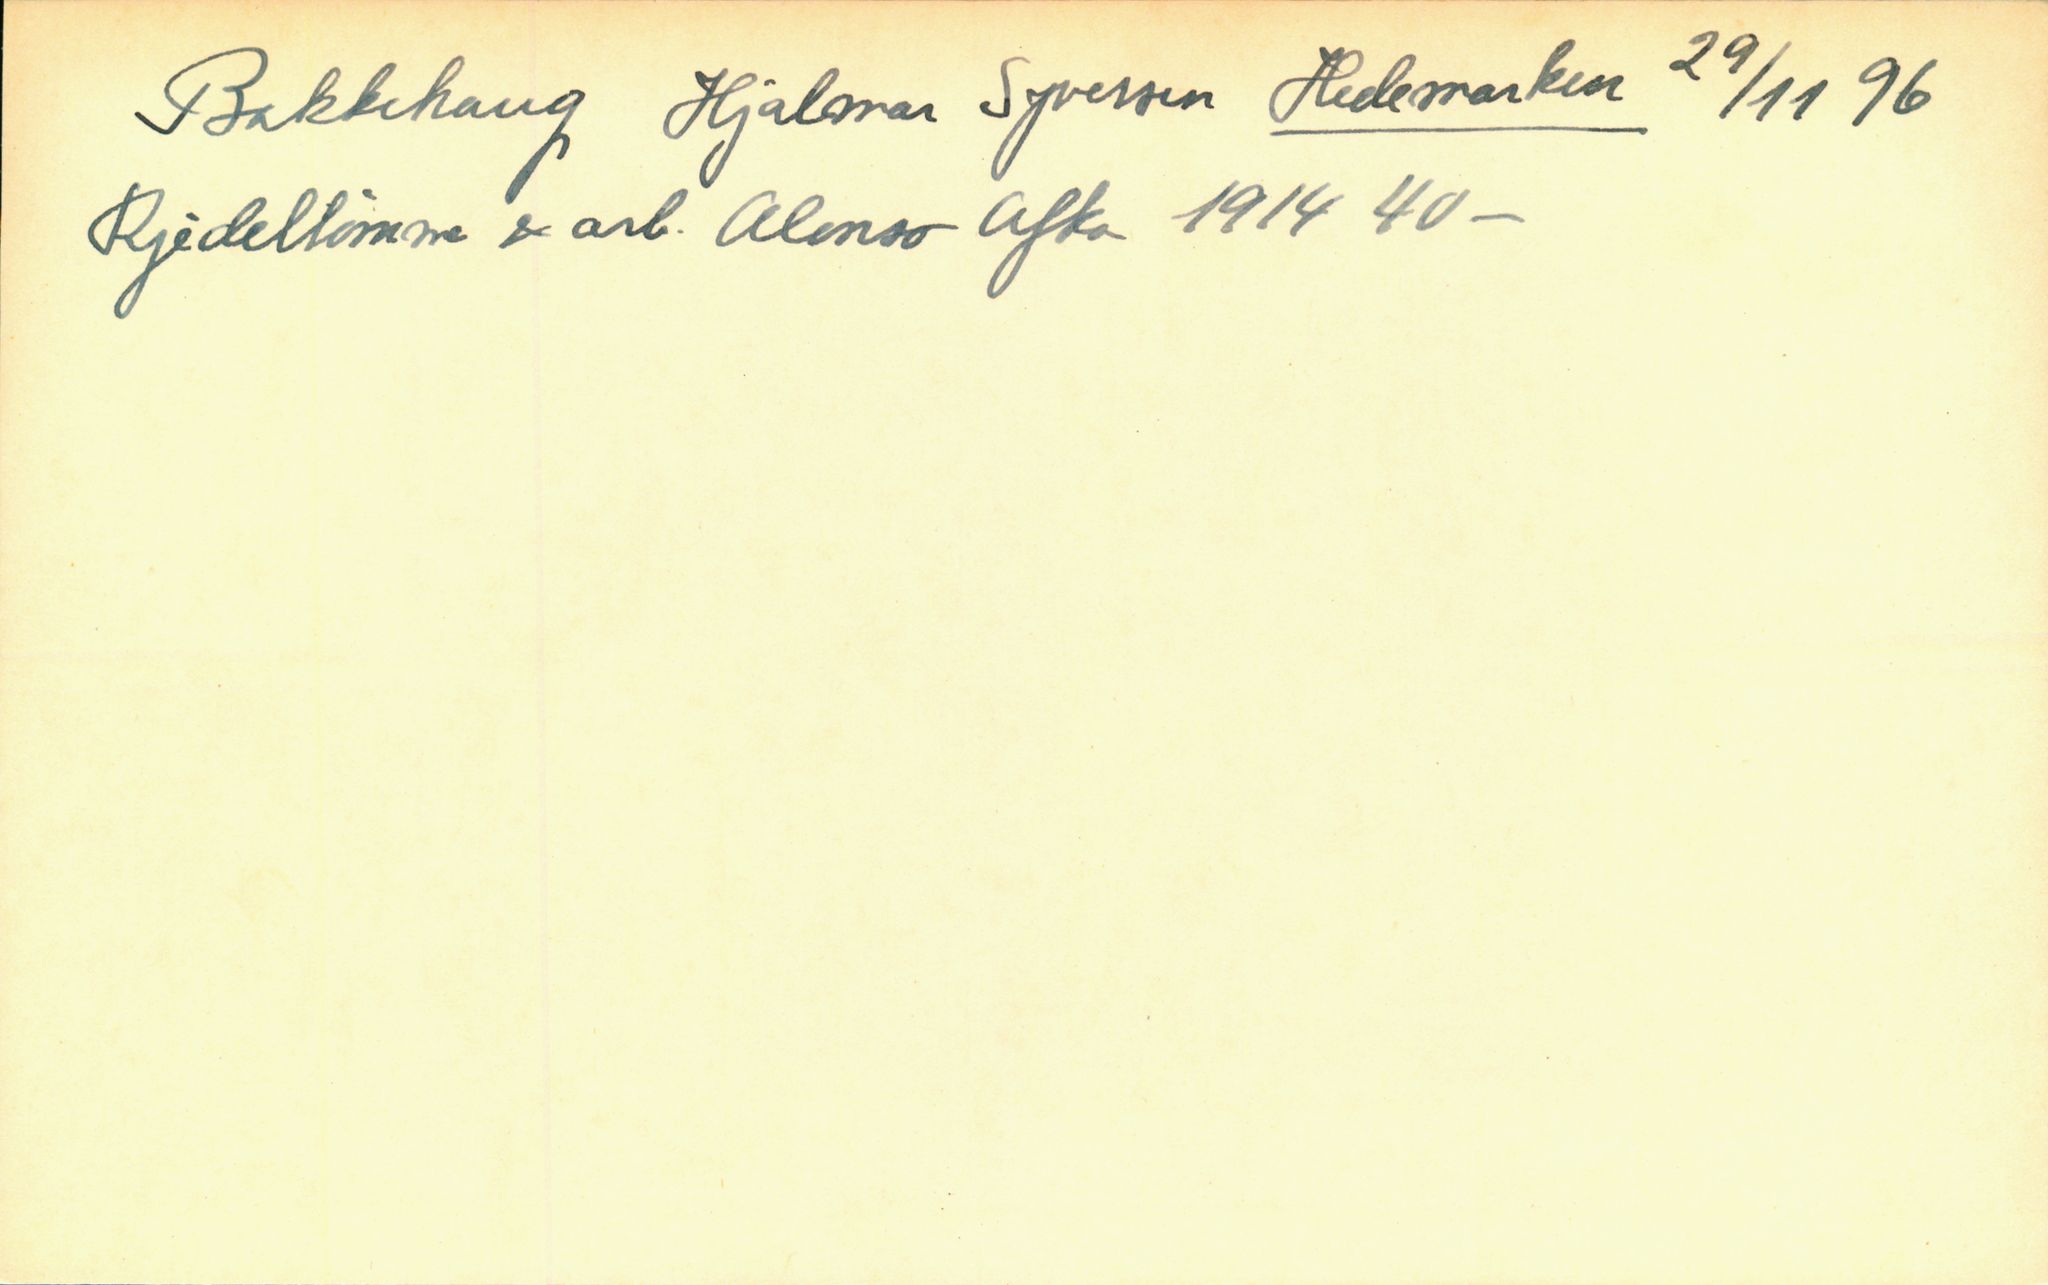 Bakkehaug Hjalmar Syversen Hedemarken 29/11 96
Kjedeltömme & arb. Alonso Afka 1914 40-